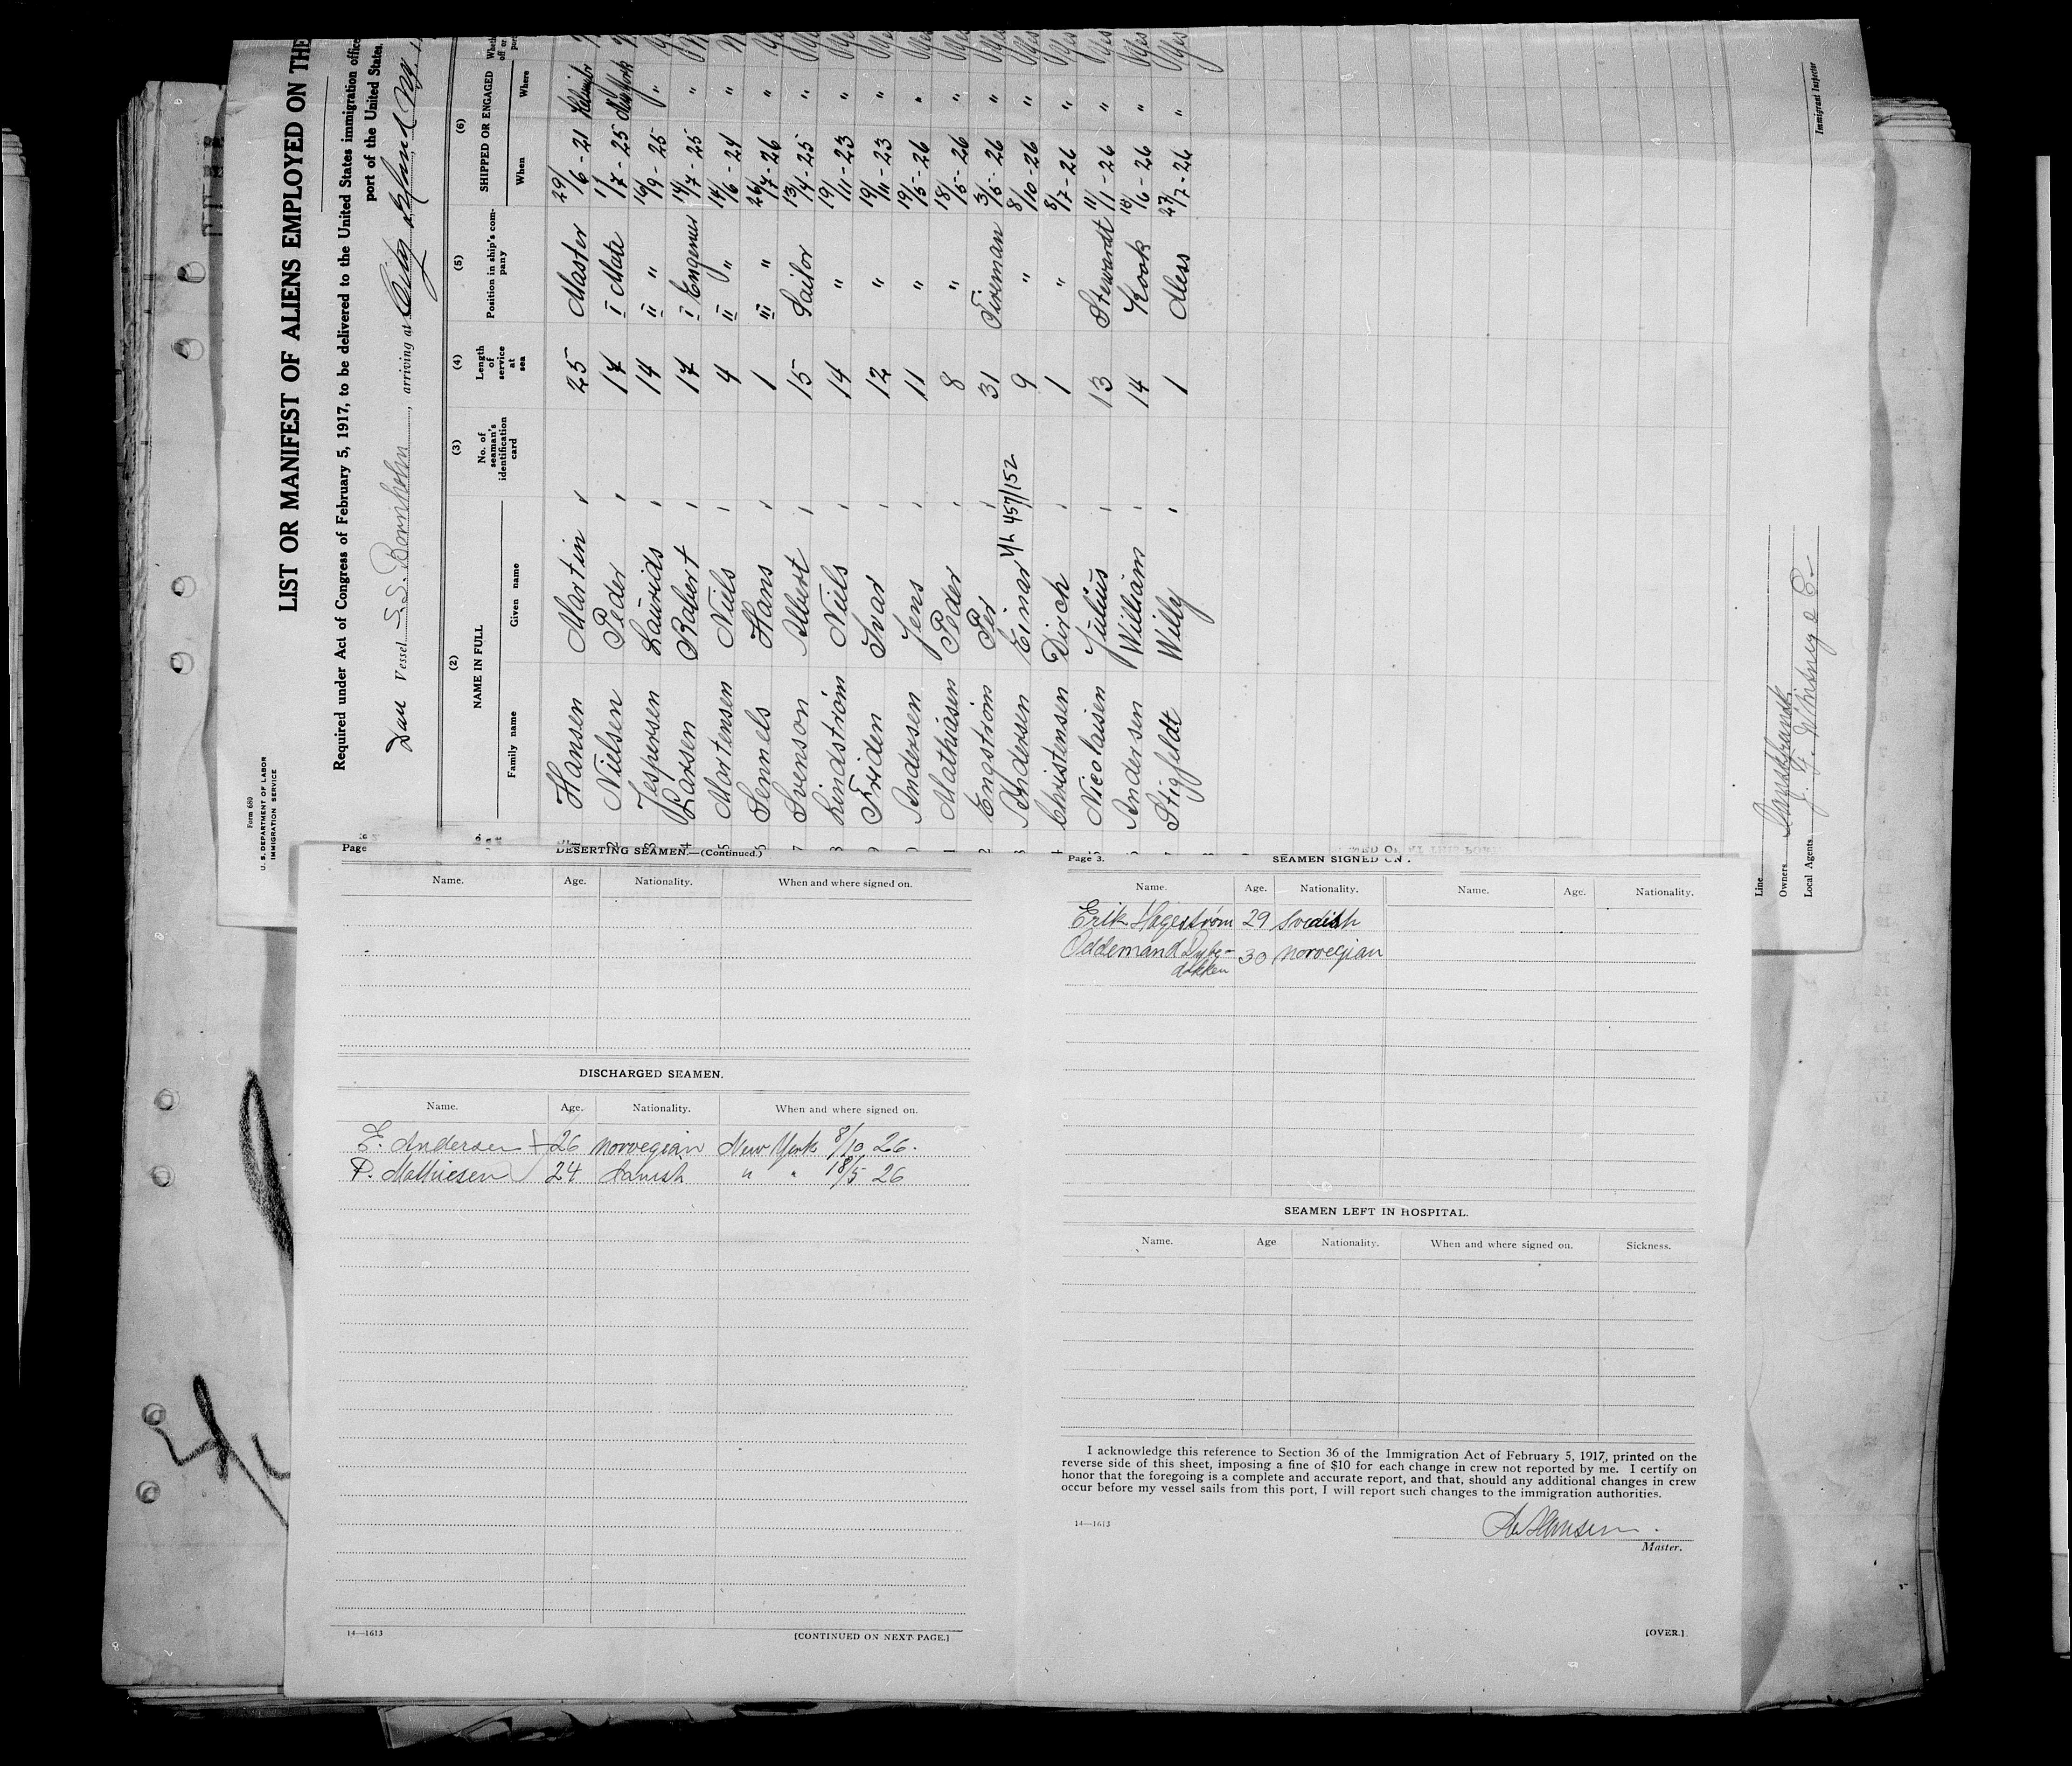 Form 680
U. S. DEPARTMENT OF LABOR
IMMIGRATION SERVICE
LIST OR MANIFEST OF ALIENS EMPLOYED ON THE
Required under Act of Congress of February 5, 1917, to be delivered to the United States immigration office
port of the United States.
Dan Vessel S.S. Bornholm, arriving at City Island Ny.
(2) (3) (4) (5) (6)
NAME IN FULL No. of seaman's identification card Length of service at sea Position in ship's company SHIPPED OR ENGAGED
Family name Given name When Where
Hansen Martin 25 Master 29/6 - 21
Nielsen Peder 17 I Mate 1/7 - 25 New York
Jespersen Laurids 14 II " 16/9 - 25 "
Larsen Robert 17 I Engeneer 14/7 - 25 "
Martensen Niels 4 II " 14/6 - 24 "
Sennels Hans 1 III " 26/7 - 26 "
Svenson Albert 15 Sailor 13/4 - 25 "
Lindstrøm Niels 14 " 19/11 - 23 "
Friden Ivar 12 " 19/11 - 23 "
Andersen Jens 11 " 19/5 - 26 "
Mathiasen Peder 8 " 18/5 - 26 "
Engstrøm Per 31 Fireman 3/5 - 26 "
Andersen Einar 4/2 457/152 9 " 8/10 - 26 "
Christensen Dirch 1 " 8/7 - 26 "
Nicolaisen Julius 13 Stewardt 11/11 - 26 "
Andersen William 14 Kook 10/6 - 26 "
Stigfeldt Willy 1 Mess 27/7 - 26 "
Line
Owners
Local Agents J. F. Whitney & Co
Immigrant Inspector
Page
DESERTING SEAMEN.—(Continued.)
Name. Age. Nationality. When and where signed on.
DISCHARGED SEAMEN.
Name. Age. Nationality. When and where signed on.
E. Andersen 26 Norwegian New York 8/10 26.
P. Mathiesen 24 Danish " " 18/5 26
14—1613 [CONTINUED ON NEXT PAGE.]
Page 3. SEAMEN SIGNED ON.
Name. Age. Nationality. Name. Age. Nationality.
Erik Hagestrøm 29 Swedish
Oddemand Dybe-
dokken 30 Norwegian
SEAMEN LEFT IN HOSPITAL.
Name. Age Nationality. When and where signed on. Sickness.
I acknowledge this reference to Section 36 of the Immigration Act of February 5, 1917, printed on the
reverse side of this sheet, imposing a fine of $10 for each change in crew not reported by me. I certify on
honor that the foregoing is a complete and accurate report, and that, should any additional changes in crew
occur before my vessel sails from this port, I will report such changes to the immigration authorities.
14—1613
Hansen
Master.
[OVER.]